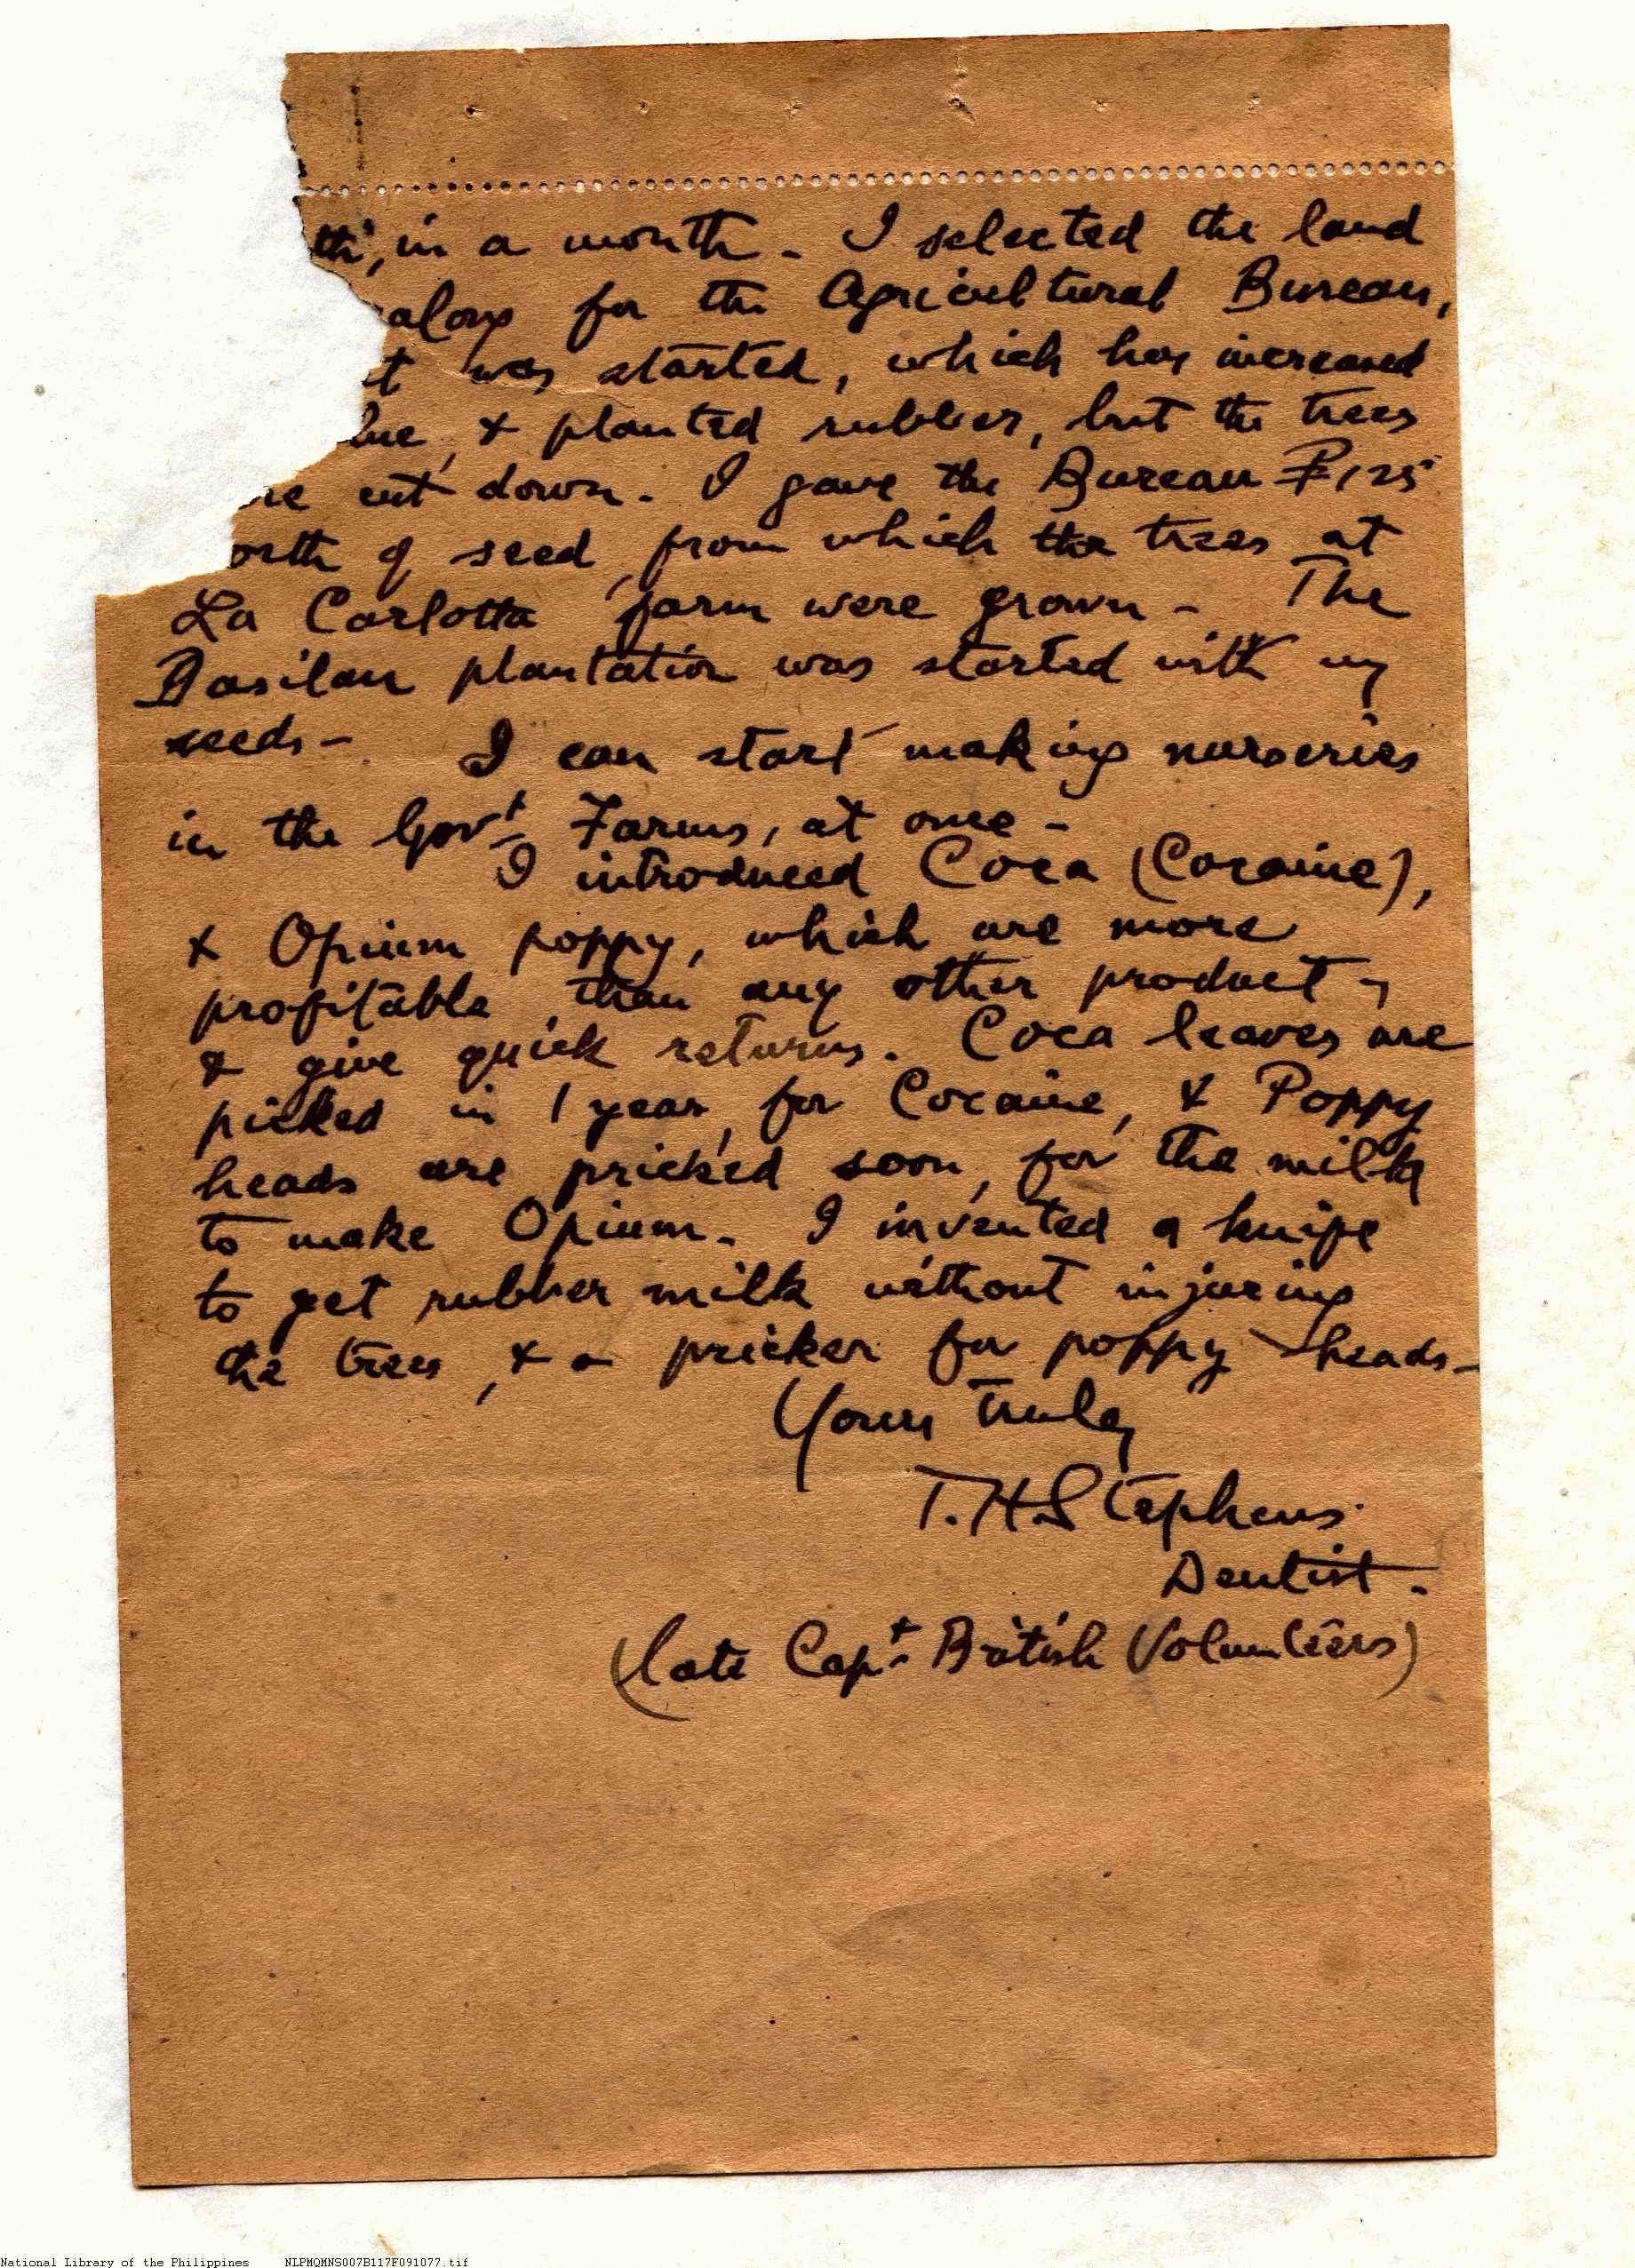 th, in a month - I selected the land
along for the Agricultural Bureau,
t was started, which has increased
lue, & planted rubber, but the trees
re cut down - I gave the Bureau ₱125
orth of seed, from which the trees at
La Carlotta farm were grown - The
Basilan plantation was started with my
seeds - I can start making nurseries
in the Govt Farms, at once -
I introduced Coca (Cocaine),
& Opium poppy, which are more
profitable, than any other product -,
& give quick returns. Coca leaves are
picked in 1 year, for Cocaine, & Poppy
heads are prick'ed soon, for the milk
to make Opium - I invented a knife
to get rubber milk without injuring
the trees, & a pricker for poppy heads -
Yours Truly
T. H. Stephens.
Dentist -
(late Capt. British Volunteers)
National Library of the Philippines NLPMQMNS007B117F091077.tif